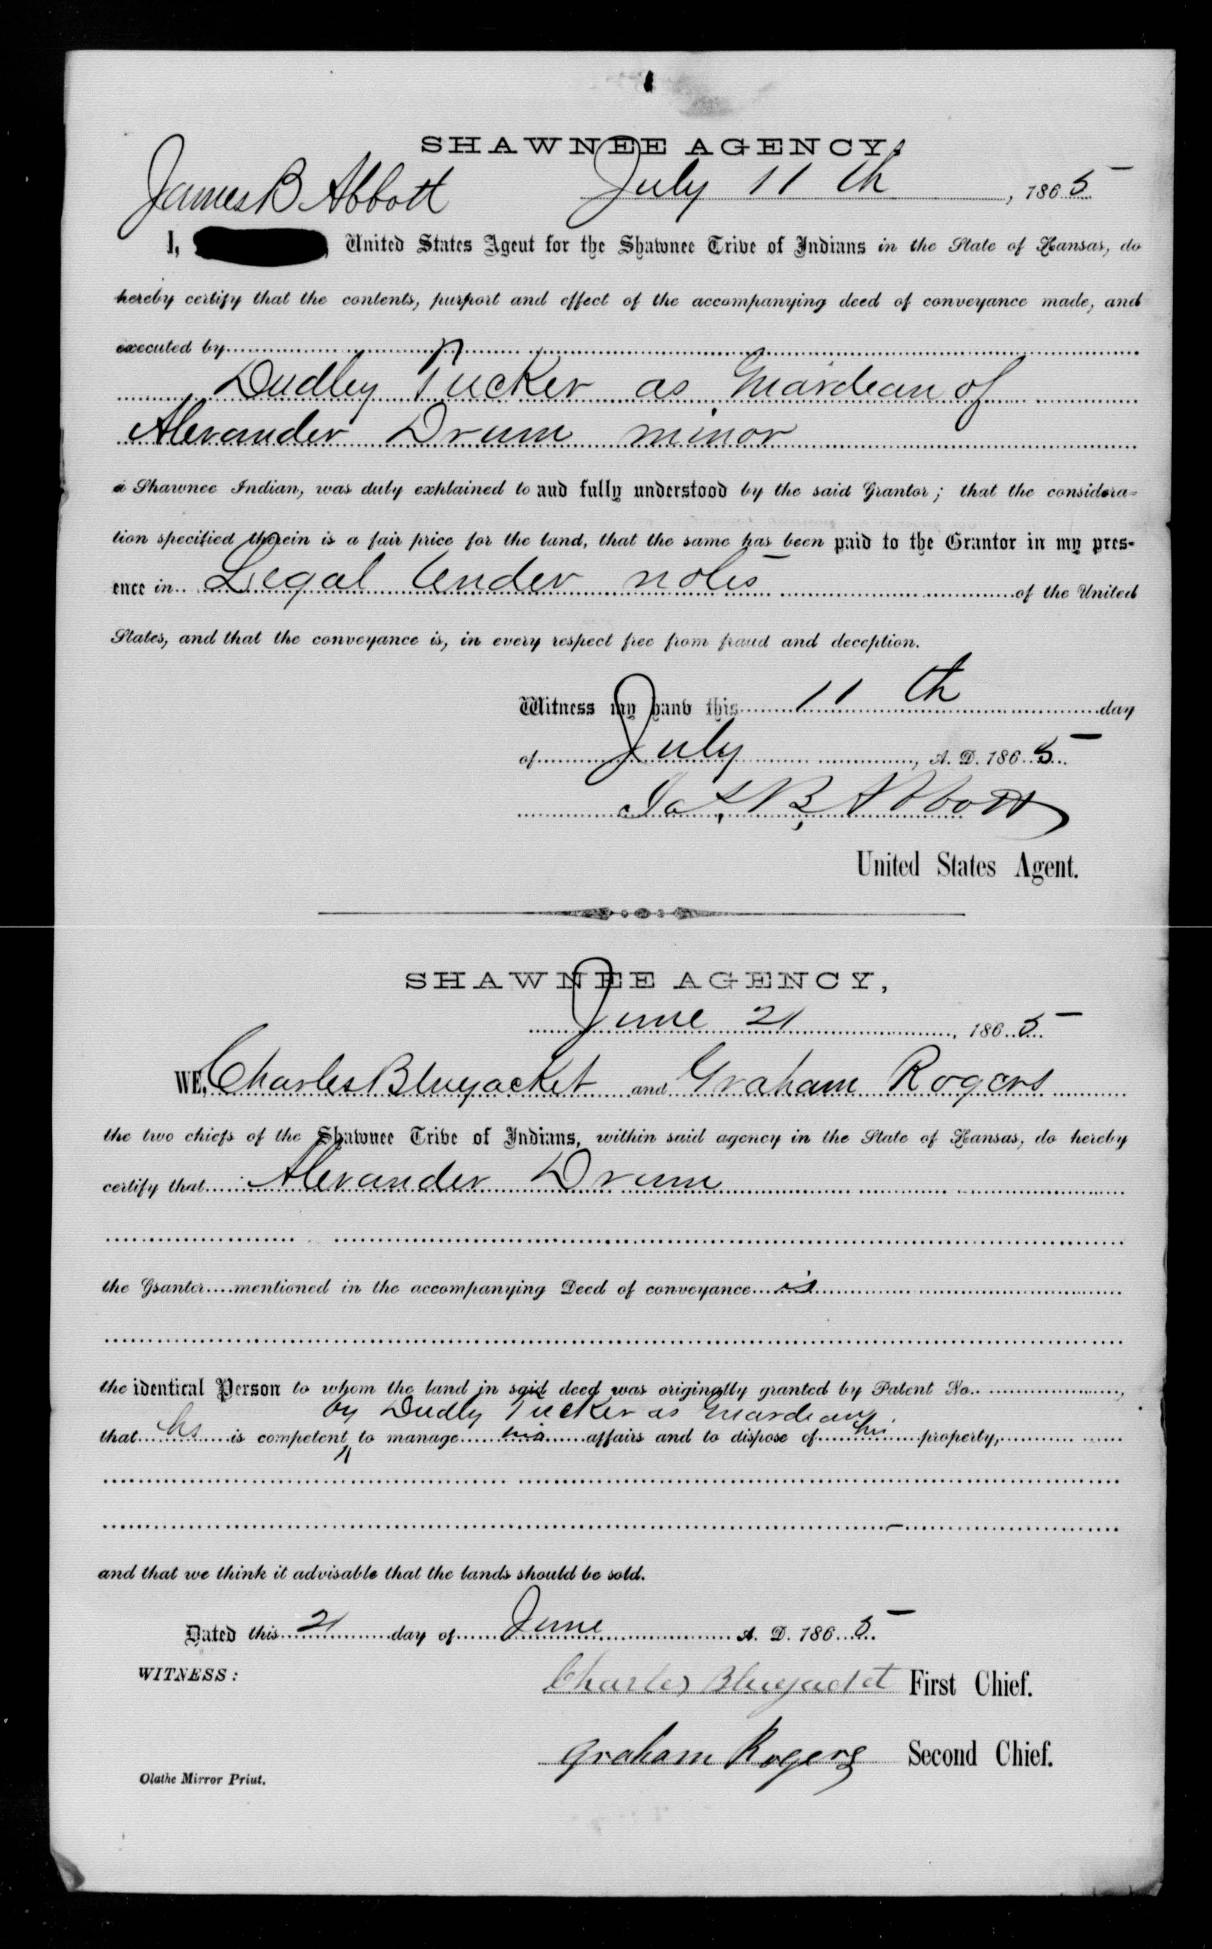 SHAWNEE AGENCY,
July 11 th, 1865
James B Abbott
I, United States Agent for the Shawnee Tribe of Indians in the State of Kansas, do
hereby certify that the contents, purport and effect of the accompanying deed of conveyance made, and
executed by
Dudley Tucker as Guardean of
Alexander Drum minor
a Shawnee Indian, was duly explained to and fully understood by the said Grantor; that the considera-
tion specified therein is a fair price for the land, that the same has been paid to the Grantor in my pres-
ence in Legal tender notes of the United
States, and that the conveyance is, in every respect free from fraud and deception.
Witness my hand this 11 th day
of July, A. D. 1865
Jas. B. Abbott
United States Agent.
SHAWNEE AGENCY,
June 21, 1865
WE, Charles Bluejacket and Graham Rogers
the two chiefs of the Shawnee Tribe of Indians, within said agency in the State of Kansas, do hereby
certify that Alexander Drum
the Grantor mentioned in the accompanying Deed of conveyance is
the identical Person to whom the land in said deed was originally granted by Patent No.
by Dudly Tucker as Guardean
that he is competent to manage his affairs and to dispose of his property,
and that we think it advisable that the lands should be sold.
Dated this 21 day of June A. D. 1865
WITNESS:
Charles Bluejacket First Chief.
Graham Rogers Second Chief.
Olathe Mirror Print.